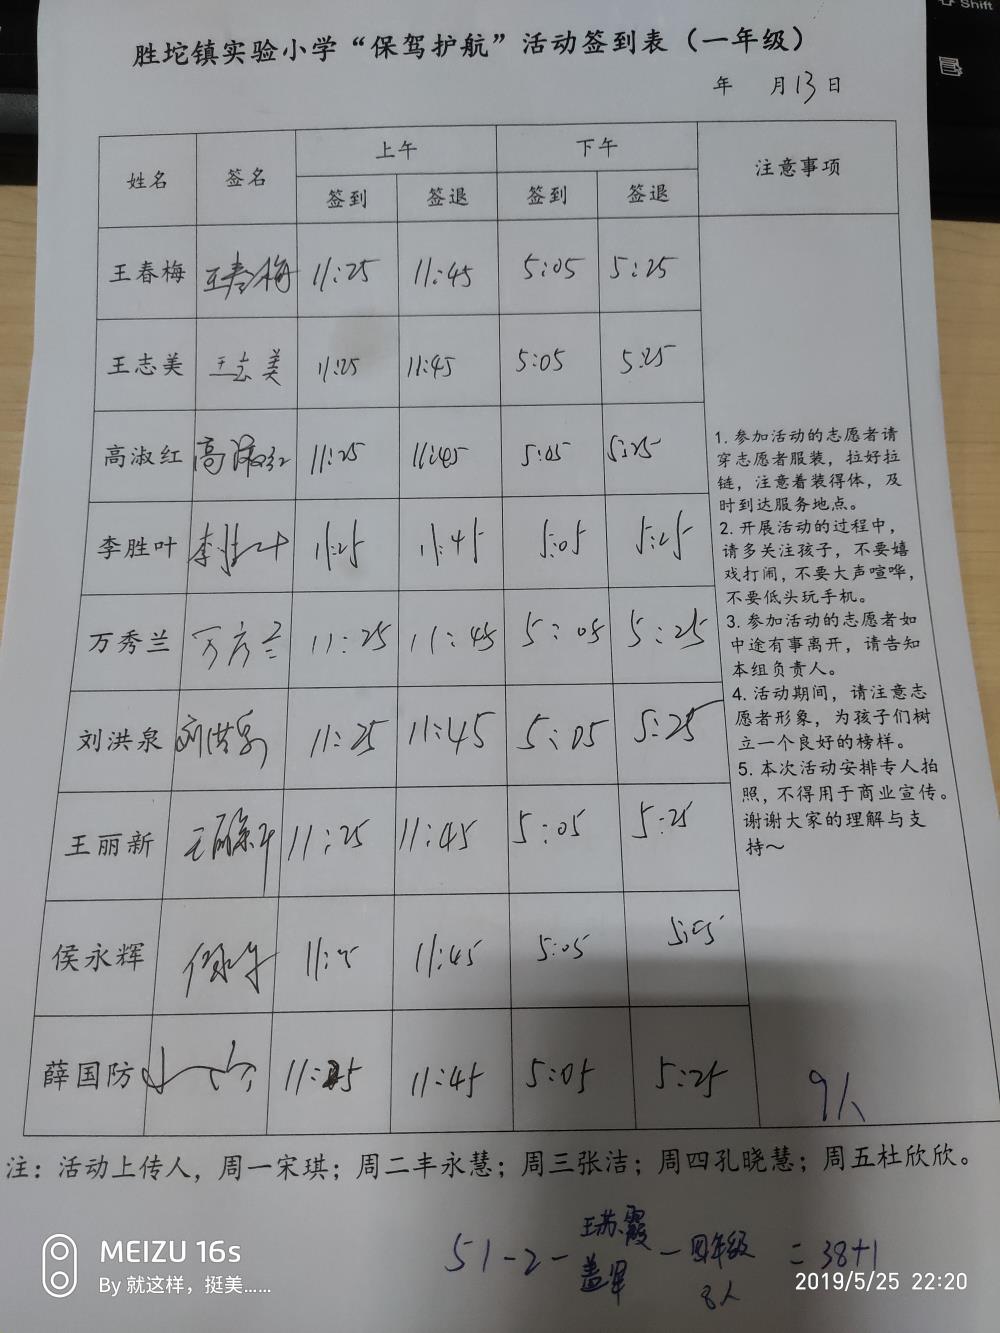 胜坨镇实验小学“保驾护航”活动签到表（一年级）
年 月13日
姓名 签名 上午 下午 注意事项
签到 签退 签到 签退
王春梅 王春梅 11:25 11:45 5:05 5:25
王志美 王志美 11:25 11:45 5:05 5:25
高淑红 高淑红 11:25 11:45 5:05 5:25
李胜叶 李胜叶 11:25 11:45 5:05 5:25
万秀兰 万秀兰 11:25 11:45 5:05 5:25
刘洪泉 刘洪泉 11:25 11:45 5:05 5:25
王丽新 王丽新 11:25 11:45 5:05 5:25
侯永辉 11:45 5:05
薛国防 11:25 11:45 5:05 5:25
1. 参加活动的志愿者请
穿志愿者服装，拉好拉
链，注意着装得体，及
时到达服务地点。
2. 开展活动的过程中，
请多关注孩子，不要嬉
戏打闹，不要大声喧哗，
不要低头玩手机。
3. 参加活动的志愿者如
中途有事离开，请告知
本组负责人。
4. 活动期间，请注意志
愿者形象，为孩子们树
立一个良好的榜样。
5. 本次活动安排专人拍
照，不得用于商业宣传。
谢谢大家的理解与支
持～
9人
注：活动上传人，周一宋琪；周二丰永慧；周三张洁；周四孔晓慧；周五杜欣欣。
王苏霞
51-2- -四年级 =38+1
盖军 8人
MEIZU 16s
By 就这样，挺美......
2019/5/25 22:20
Shift